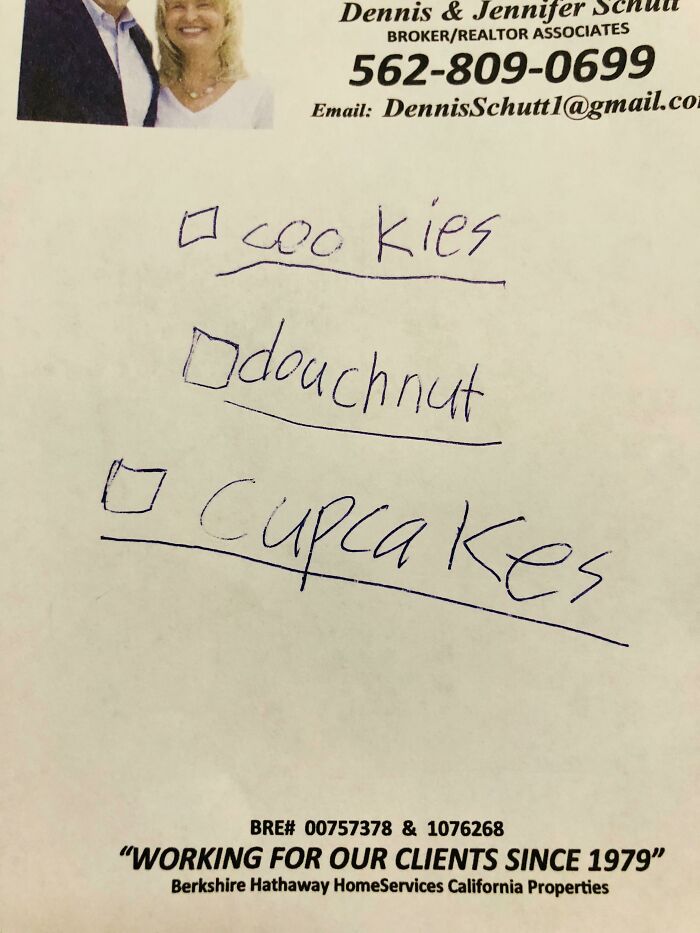 Dennis & Jennifer Schutt
BROKER/REALTOR ASSOCIATES
562-809-0699
Email: DennisSchutt1@gmail.co
cookies
douchnut
cupcakes
BRE# 00757378 & 1076268
“WORKING FOR OUR CLIENTS SINCE 1979”
Berkshire Hathaway HomeServices California Properties